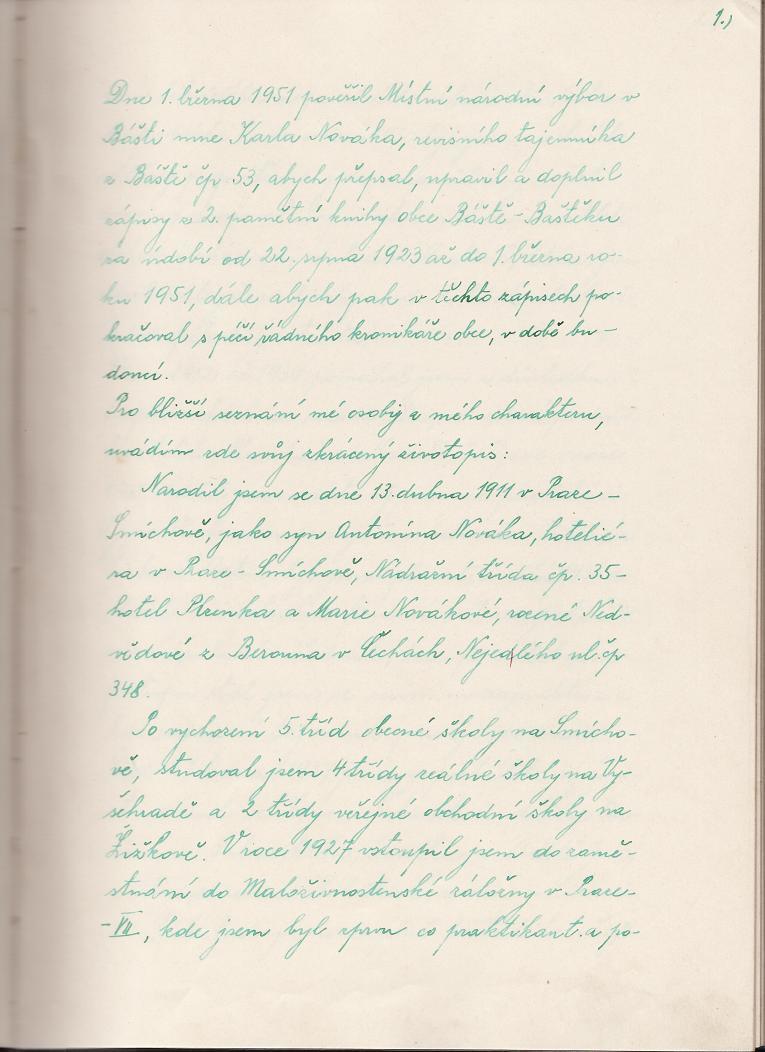 1.)
Dne 1. března 1951 pověřil Místní národní výbor v
Bášti mne Karla Nováka, revisního tajemníka
z Báště čp 53, abych přepsal, upravil a doplnil
zápisy z 2. pamětní knihy obce Báště - Baštěku
za údobí od 22. srpna 1923 až do 1. března ro-
ku 1951, dále abych pak v těchto zápisech po-
kračoval s péčí řádného kronikáře obce, v době bu-
doucí.
Pro bližší seznání mé osoby z mého charakteru,
uvádím zde svůj zkrácený životopis:
Narodil jsem se dne 13. dubna 1911 v Praze -
Smíchově, jako syn Antonína Nováka, hotelié-
ra v Praze - Smíchově, Nádražní třída čp. 35 -
hotel Plzenka a Marie Novákové, rozené Ned-
vědové z Berouna v Čechách, Nejedlého ul. čp
348.
Po vychození 5. tříd obecné školy na Smícho-
vě, studoval jsem 4 třídy reálné školy na Vy-
šehradě a 2 třídy veřejné obchodní školy na
Žižkově. V roce 1927 vstoupil jsem do zamě-
stnání do Maloživnostenské záložny v Praze-
-VII, kde jsem byl zprvu co praktikant a po-